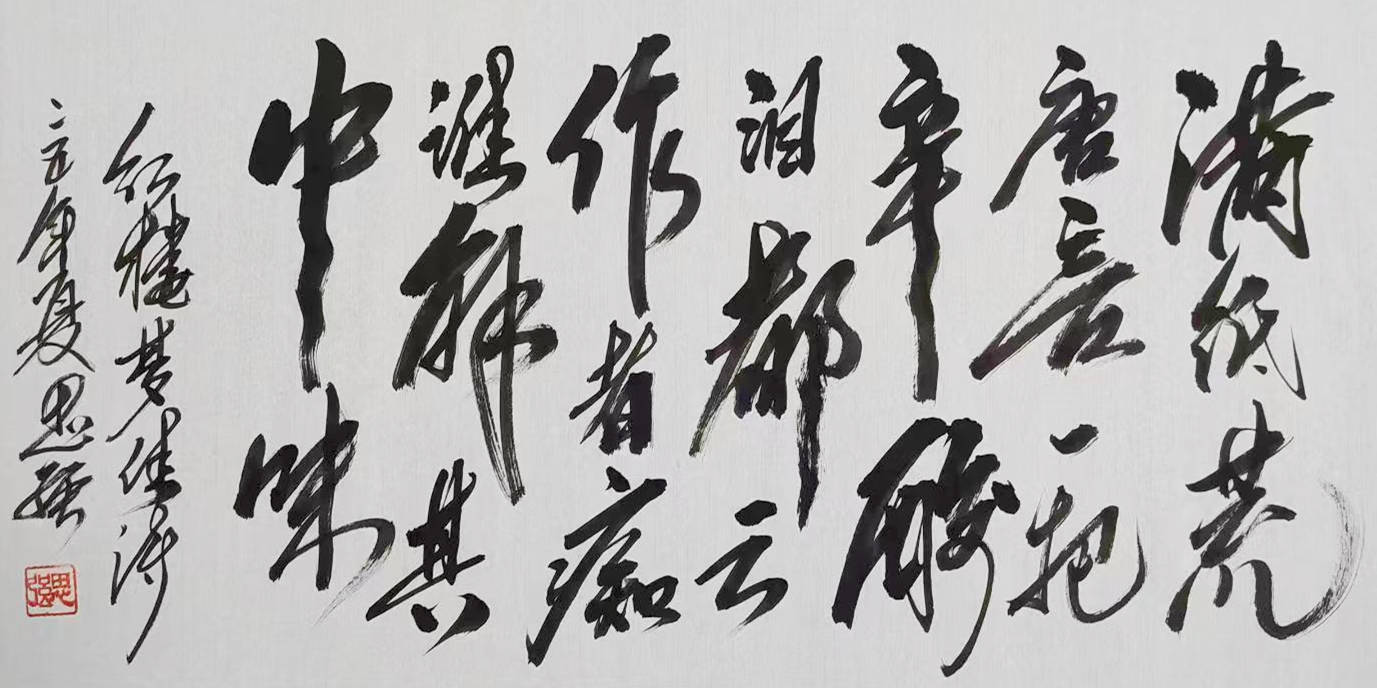 满纸荒
唐言一把
辛酸
泪都云
作者痴
谁解其
中味
红楼梦佳诗
二五年夏思强
思强